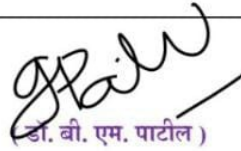 ( डॉ. बी. एम. पाटील )